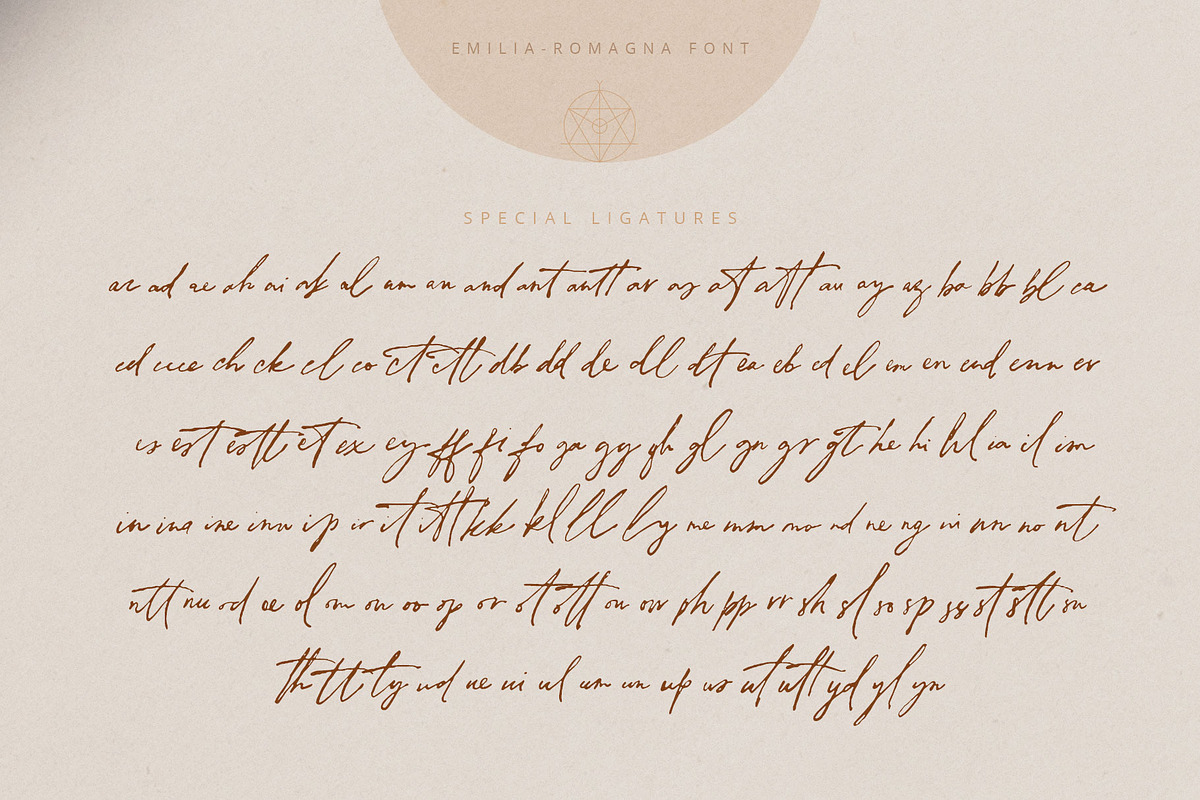 EMILIA-ROMAGNA FONT
SPECIAL LIGATURES
ac ad ae ah ai ak al am an and ant antt ar as at att au ay az ba bb bl ca
cd cce ch ck cl co ct ctt db dd de dl dt ea eb ed el em en end enn er
es est estt et ex ey ff fi fo ga gg gh gl gn gr gt he hi hl ia il im
in ina ine inn ip ir it itt kk kl ll ly me mm mo nd ne ng ni nn no nt
ntt nu od oe ol om on oo op or ot ott ou ow ph pp rr sh sl so sp ss st stt su
th tt ty ud ue ui ul um un up us ut utt yd yl yn